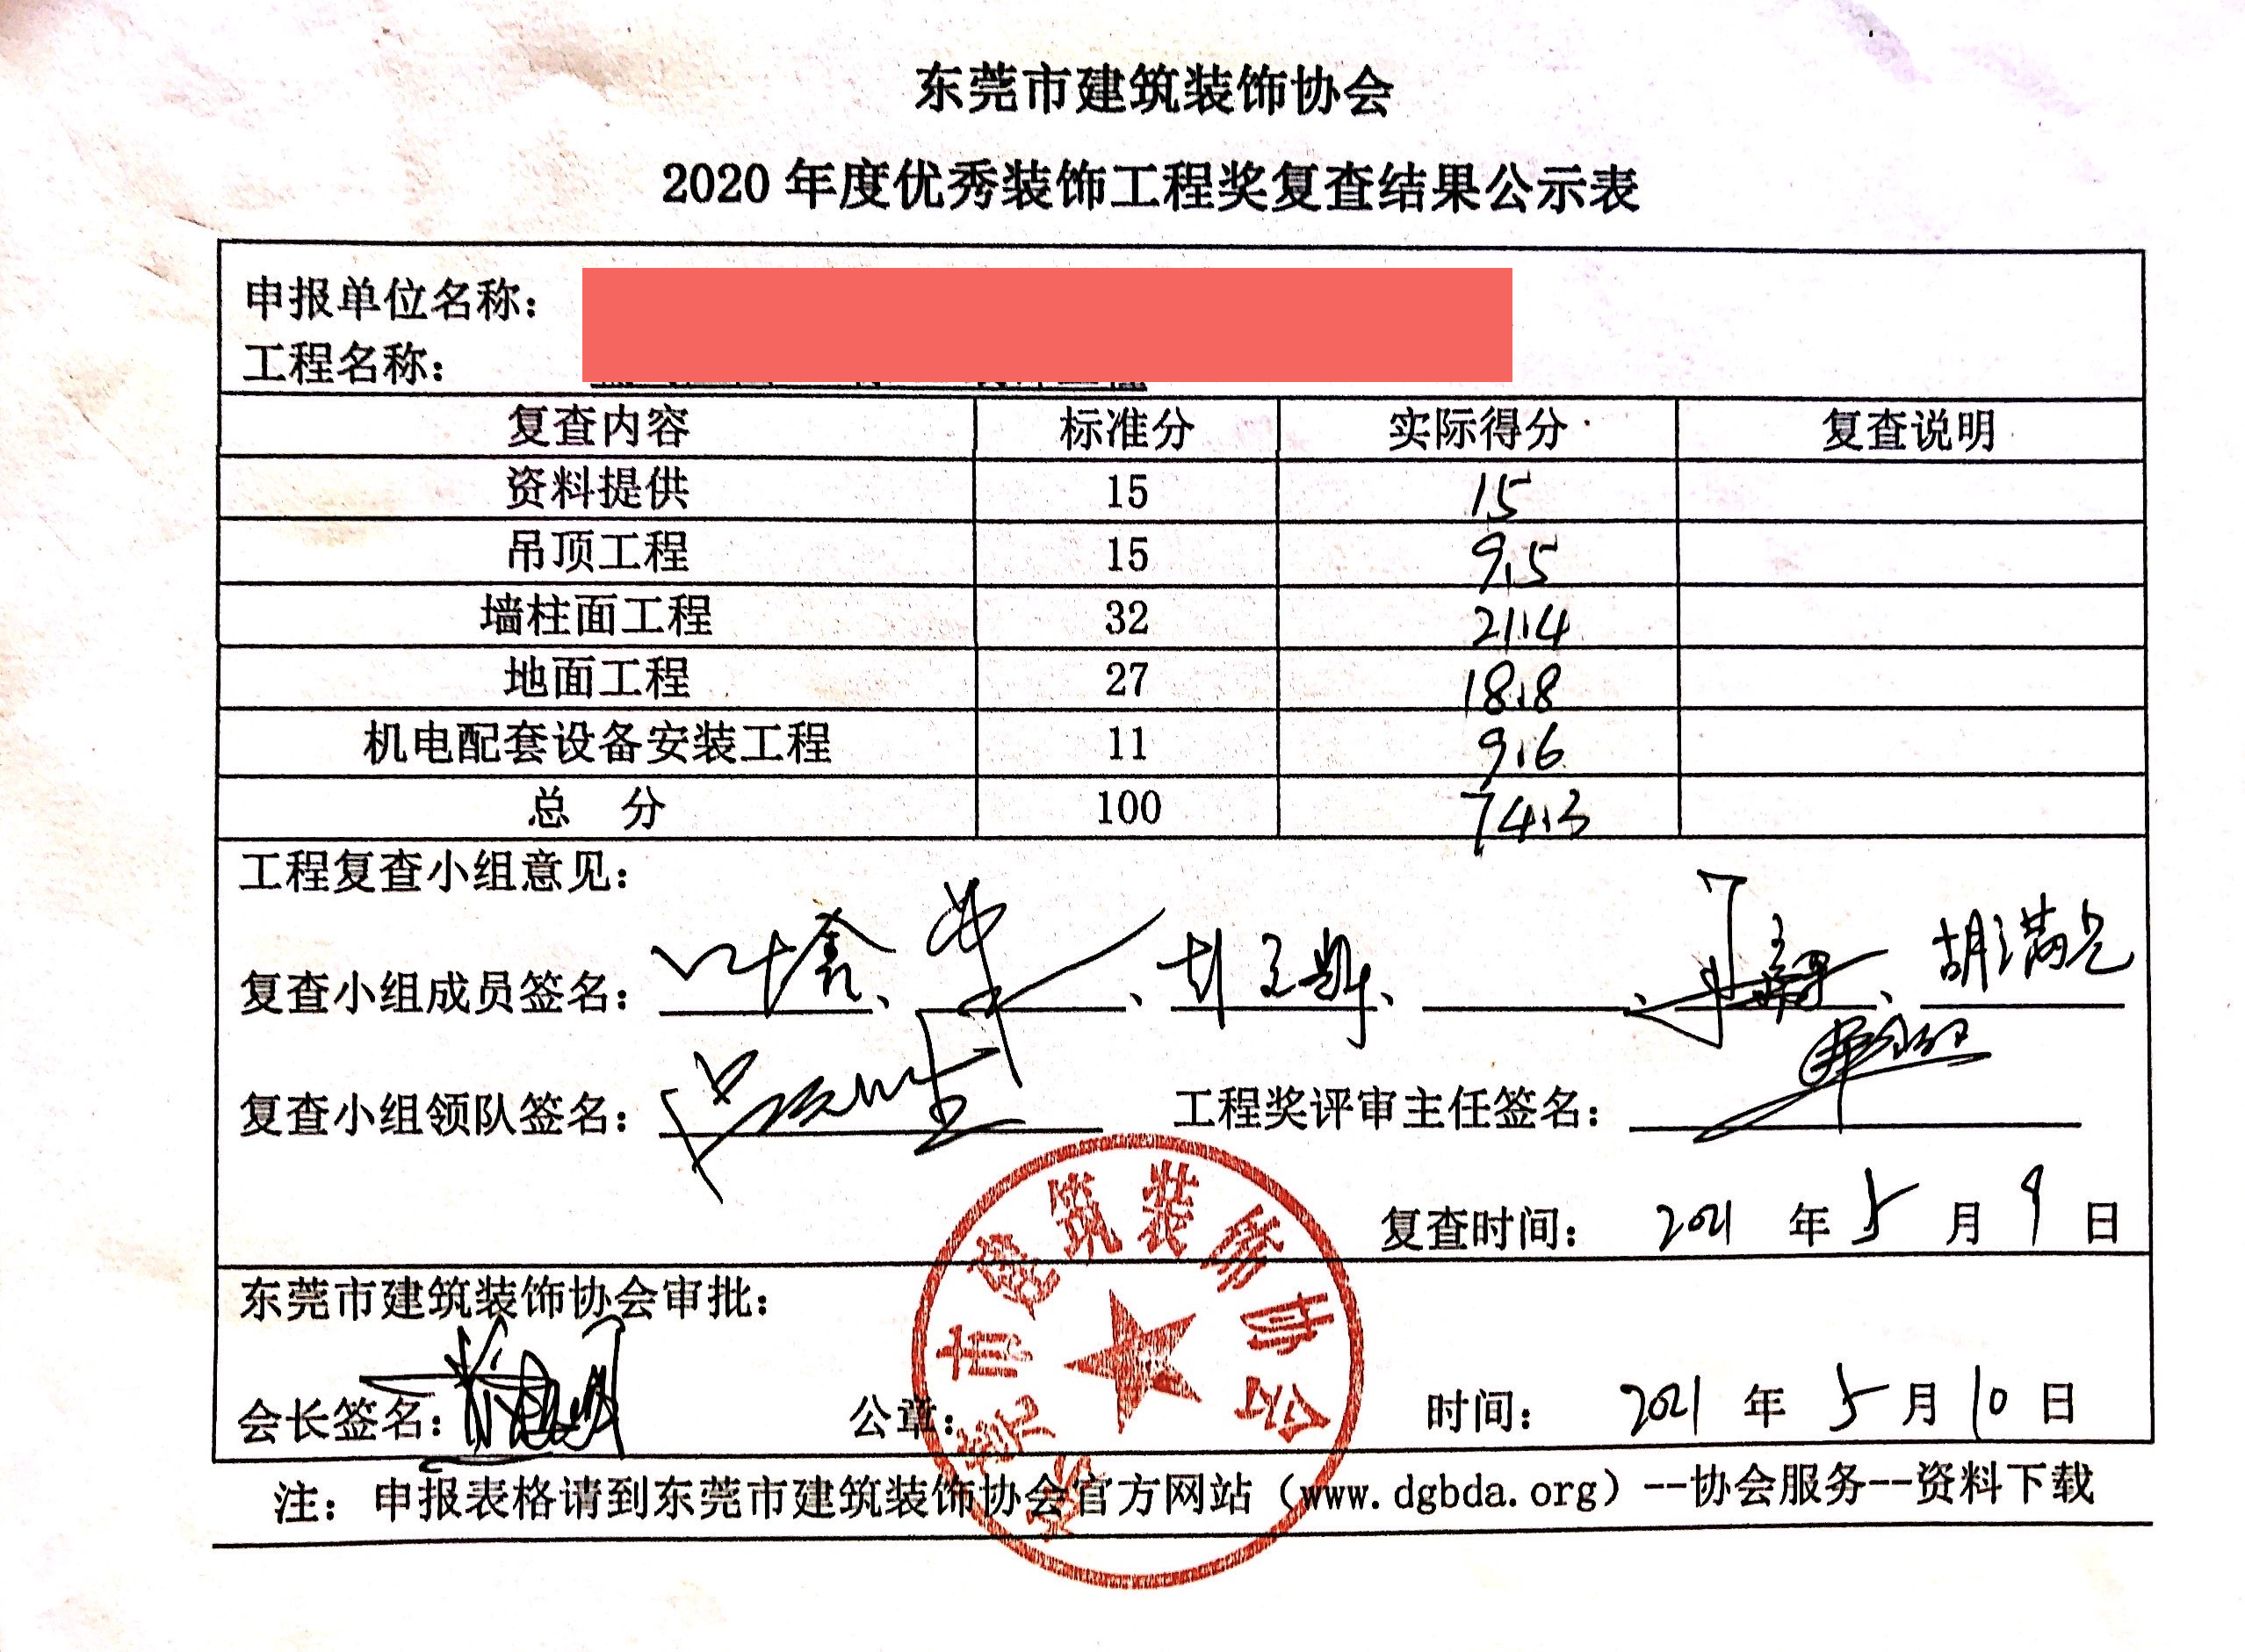 东莞市建筑装饰协会
2020 年度优秀装饰工程奖复查结果公示表
申报单位名称：
工程名称：
复查内容 标准分 实际得分 复查说明
资料提供 15 15
吊顶工程 15 9.5
墙柱面工程 32 21.4
地面工程 27 18.8
机电配套设备安装工程 11 9.6
总 分 100 74.3
工程复查小组意见：
复查小组成员签名： 叶鑫、 、 、 、 、胡满光
复查小组领队签名： 工程奖评审主任签名：
复查时间： 2021 年 5 月 9 日
东莞市建筑装饰协会审批：
会长签名： 公章： 时间： 2021 年 5 月 10 日
东莞市建筑装饰协会
注：申报表格请到东莞市建筑装饰协会官方网站（www.dgbda.org）--协会服务--资料下载